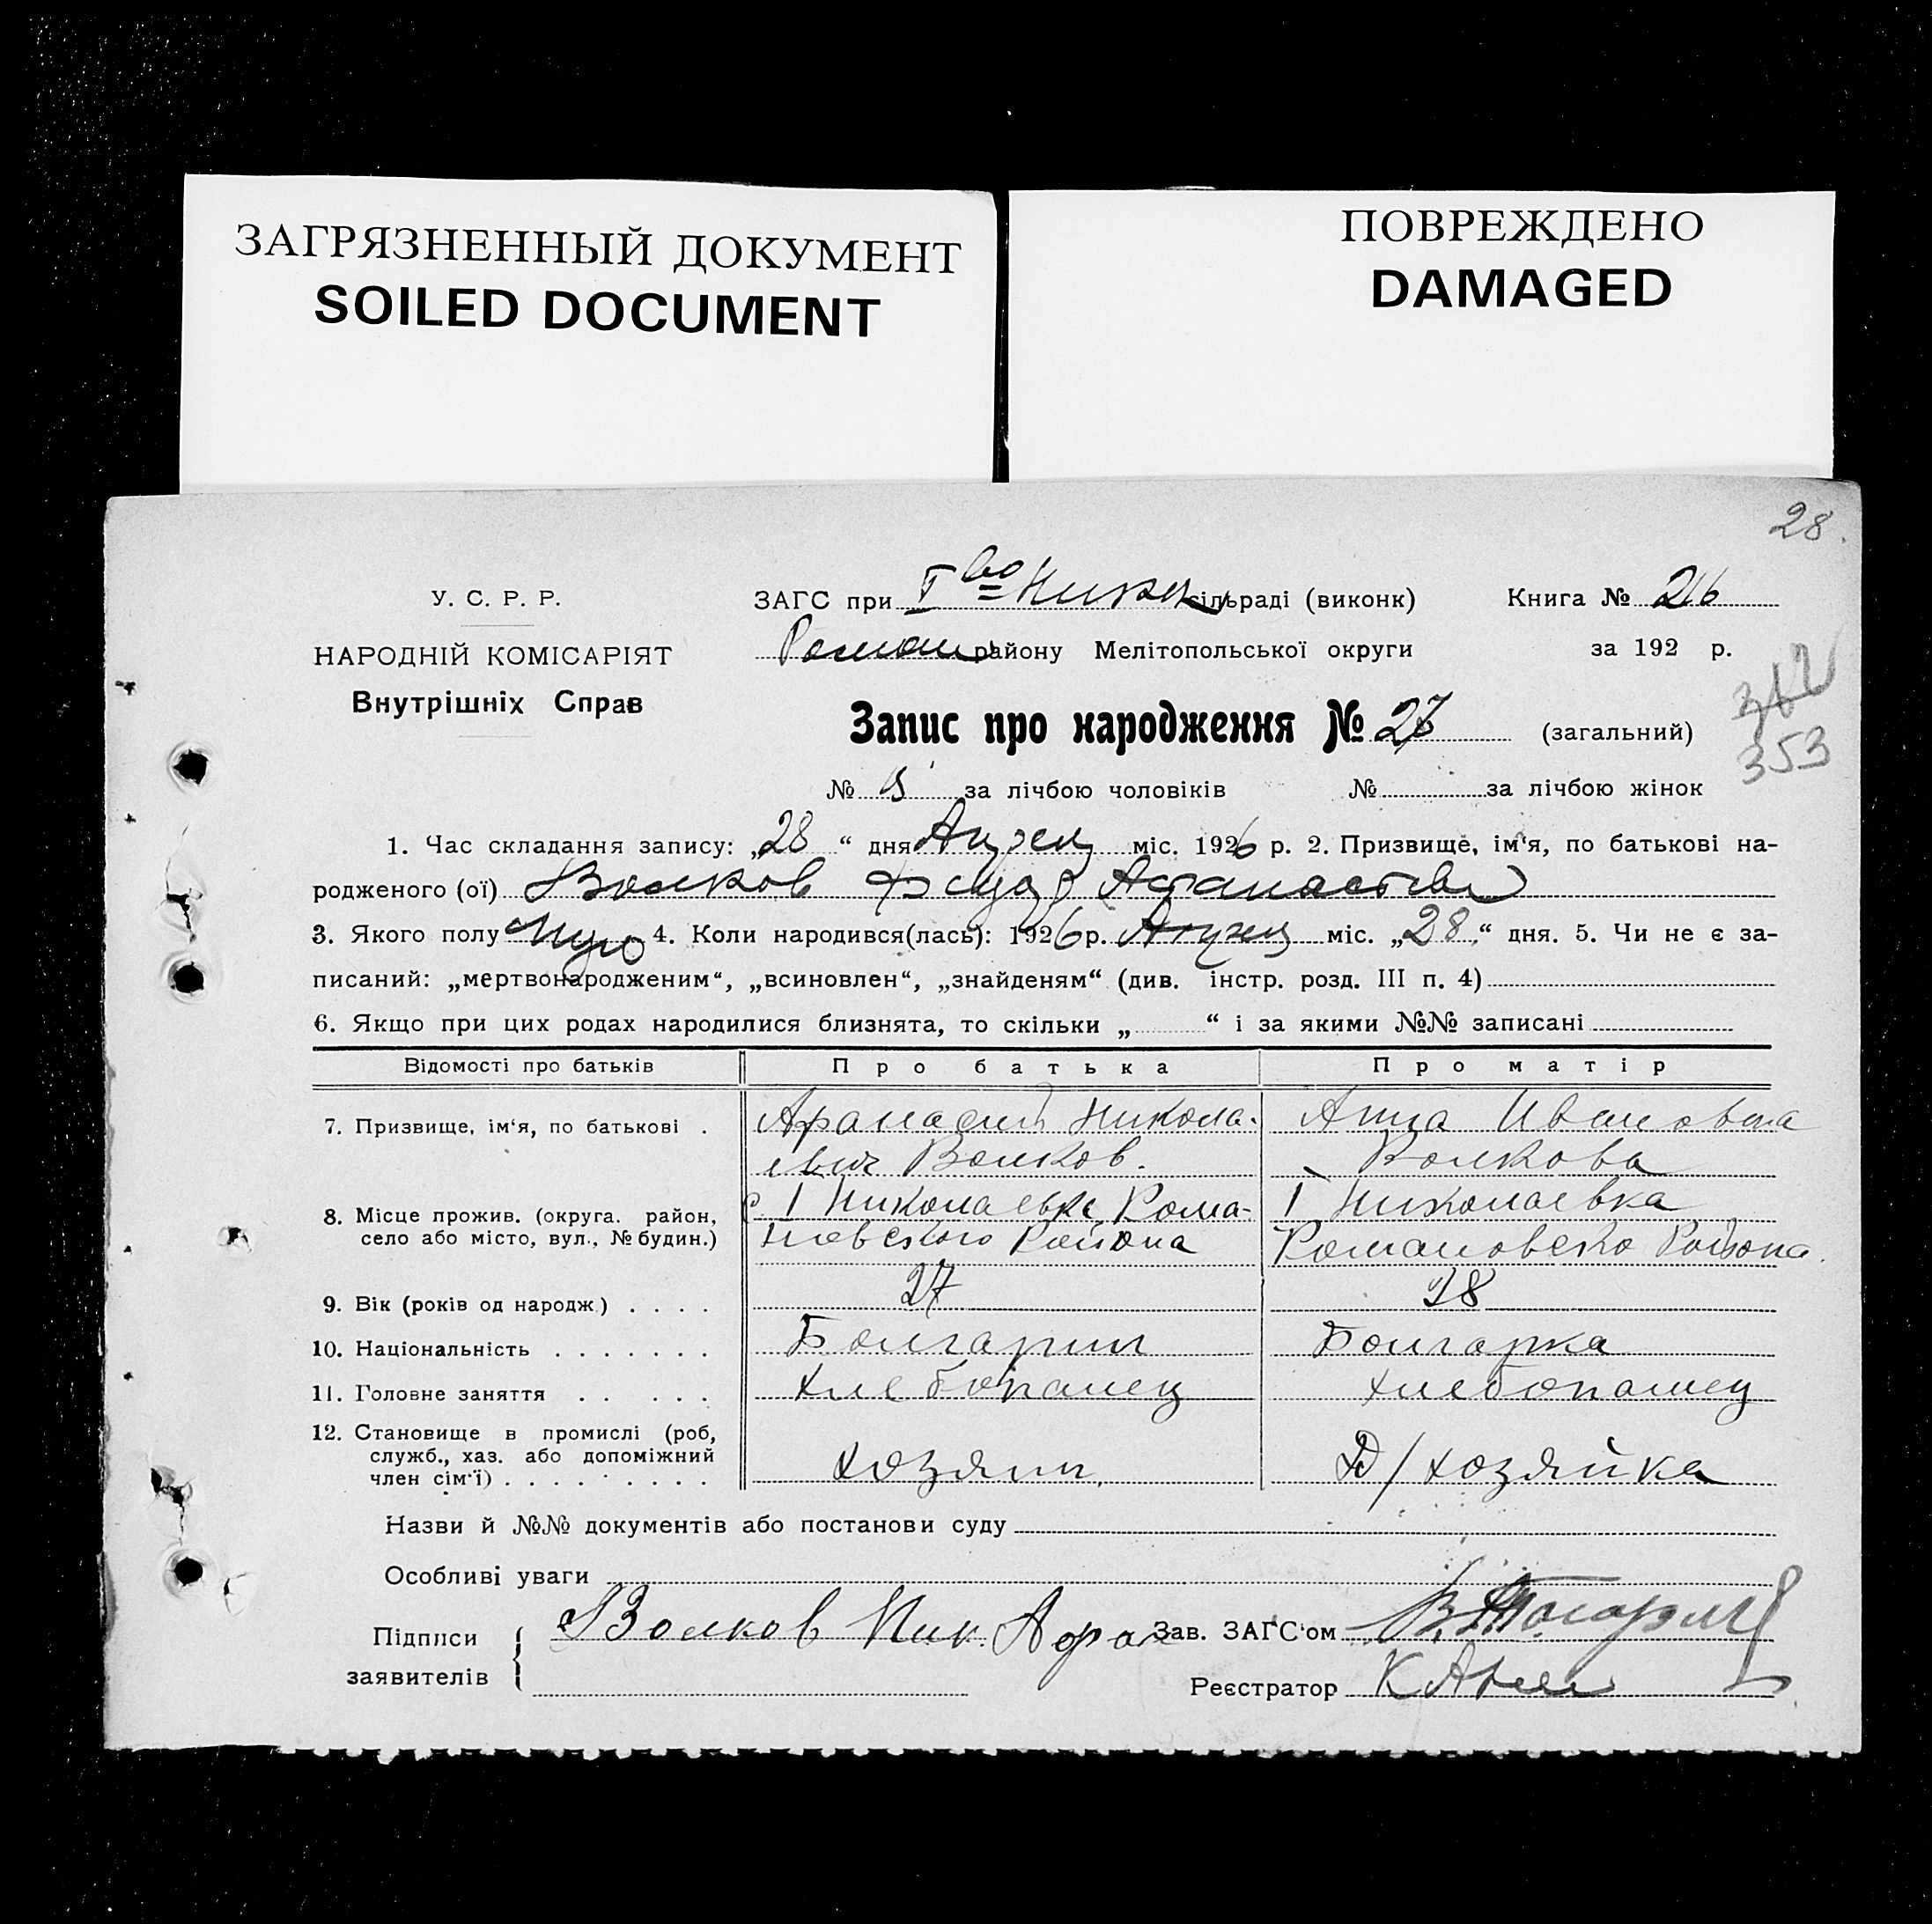 ЗАГРЯЗНЕННЫЙ ДОКУМЕНТ
SOILED DOCUMENT
ПОВРЕЖДЕНО
DAMAGED
28.
У. С. Р. Р.
НАРОДНІЙ КОМІСАРІЯТ
Внутрішніх Справ
ЗАГС при І во Никол сільраді (виконк) Книга № 216
Роман району Мелітопольської округи за 192 р.
353
Запис про народження № 27 (загальний)
№ за лічбою чоловіків № за лічбою жінок
1. Час складання запису: „28“ дня Апрел міс. 1926 р. 2. Призвище, ім‘я, по батькові на-
родженого (ої) Волков Федор Афанасьев
3. Якого полу Муж 4. Коли народився(лась): 1926 р. Апрел міс. „28“ дня. 5. Чи не є за-
писаний: „мертвонародженим“, „всиновлен“, „знайденям“ (див. інстр. розд. III п. 4)
6. Якщо при цих родах народилися близнята, то скільки „ “ і за якими №№ записані
Відомості про батьків Про батька Про матір
7. Призвище, ім‘я, по батькові . Афанасий Никола- Анна Ивановна
евич Волков. Волкова
8. Місце прожив. (округа. район, село або місто, вул., № будин.) с. І Николаевка Рома- І Николаевка
новского Района Романовско Района.
9. Вік (років од народж.) . . . . 27 28
10. Національність . . . . . . . Болгарин Болгарка
11. Головне заняття . . . . . Хлебопашец Хлебопашец
12. Становище в промислі (роб,
служб., хаз. або допоміжний
член сім‘ї) . . . . . . . . . Хозяин Д/хозяйка
Назви й №№ документів або постанови суду
Особливі уваги
Підписи заявителів Волков Ник. Афан Зав. ЗАГС‘ом
Реєстратор